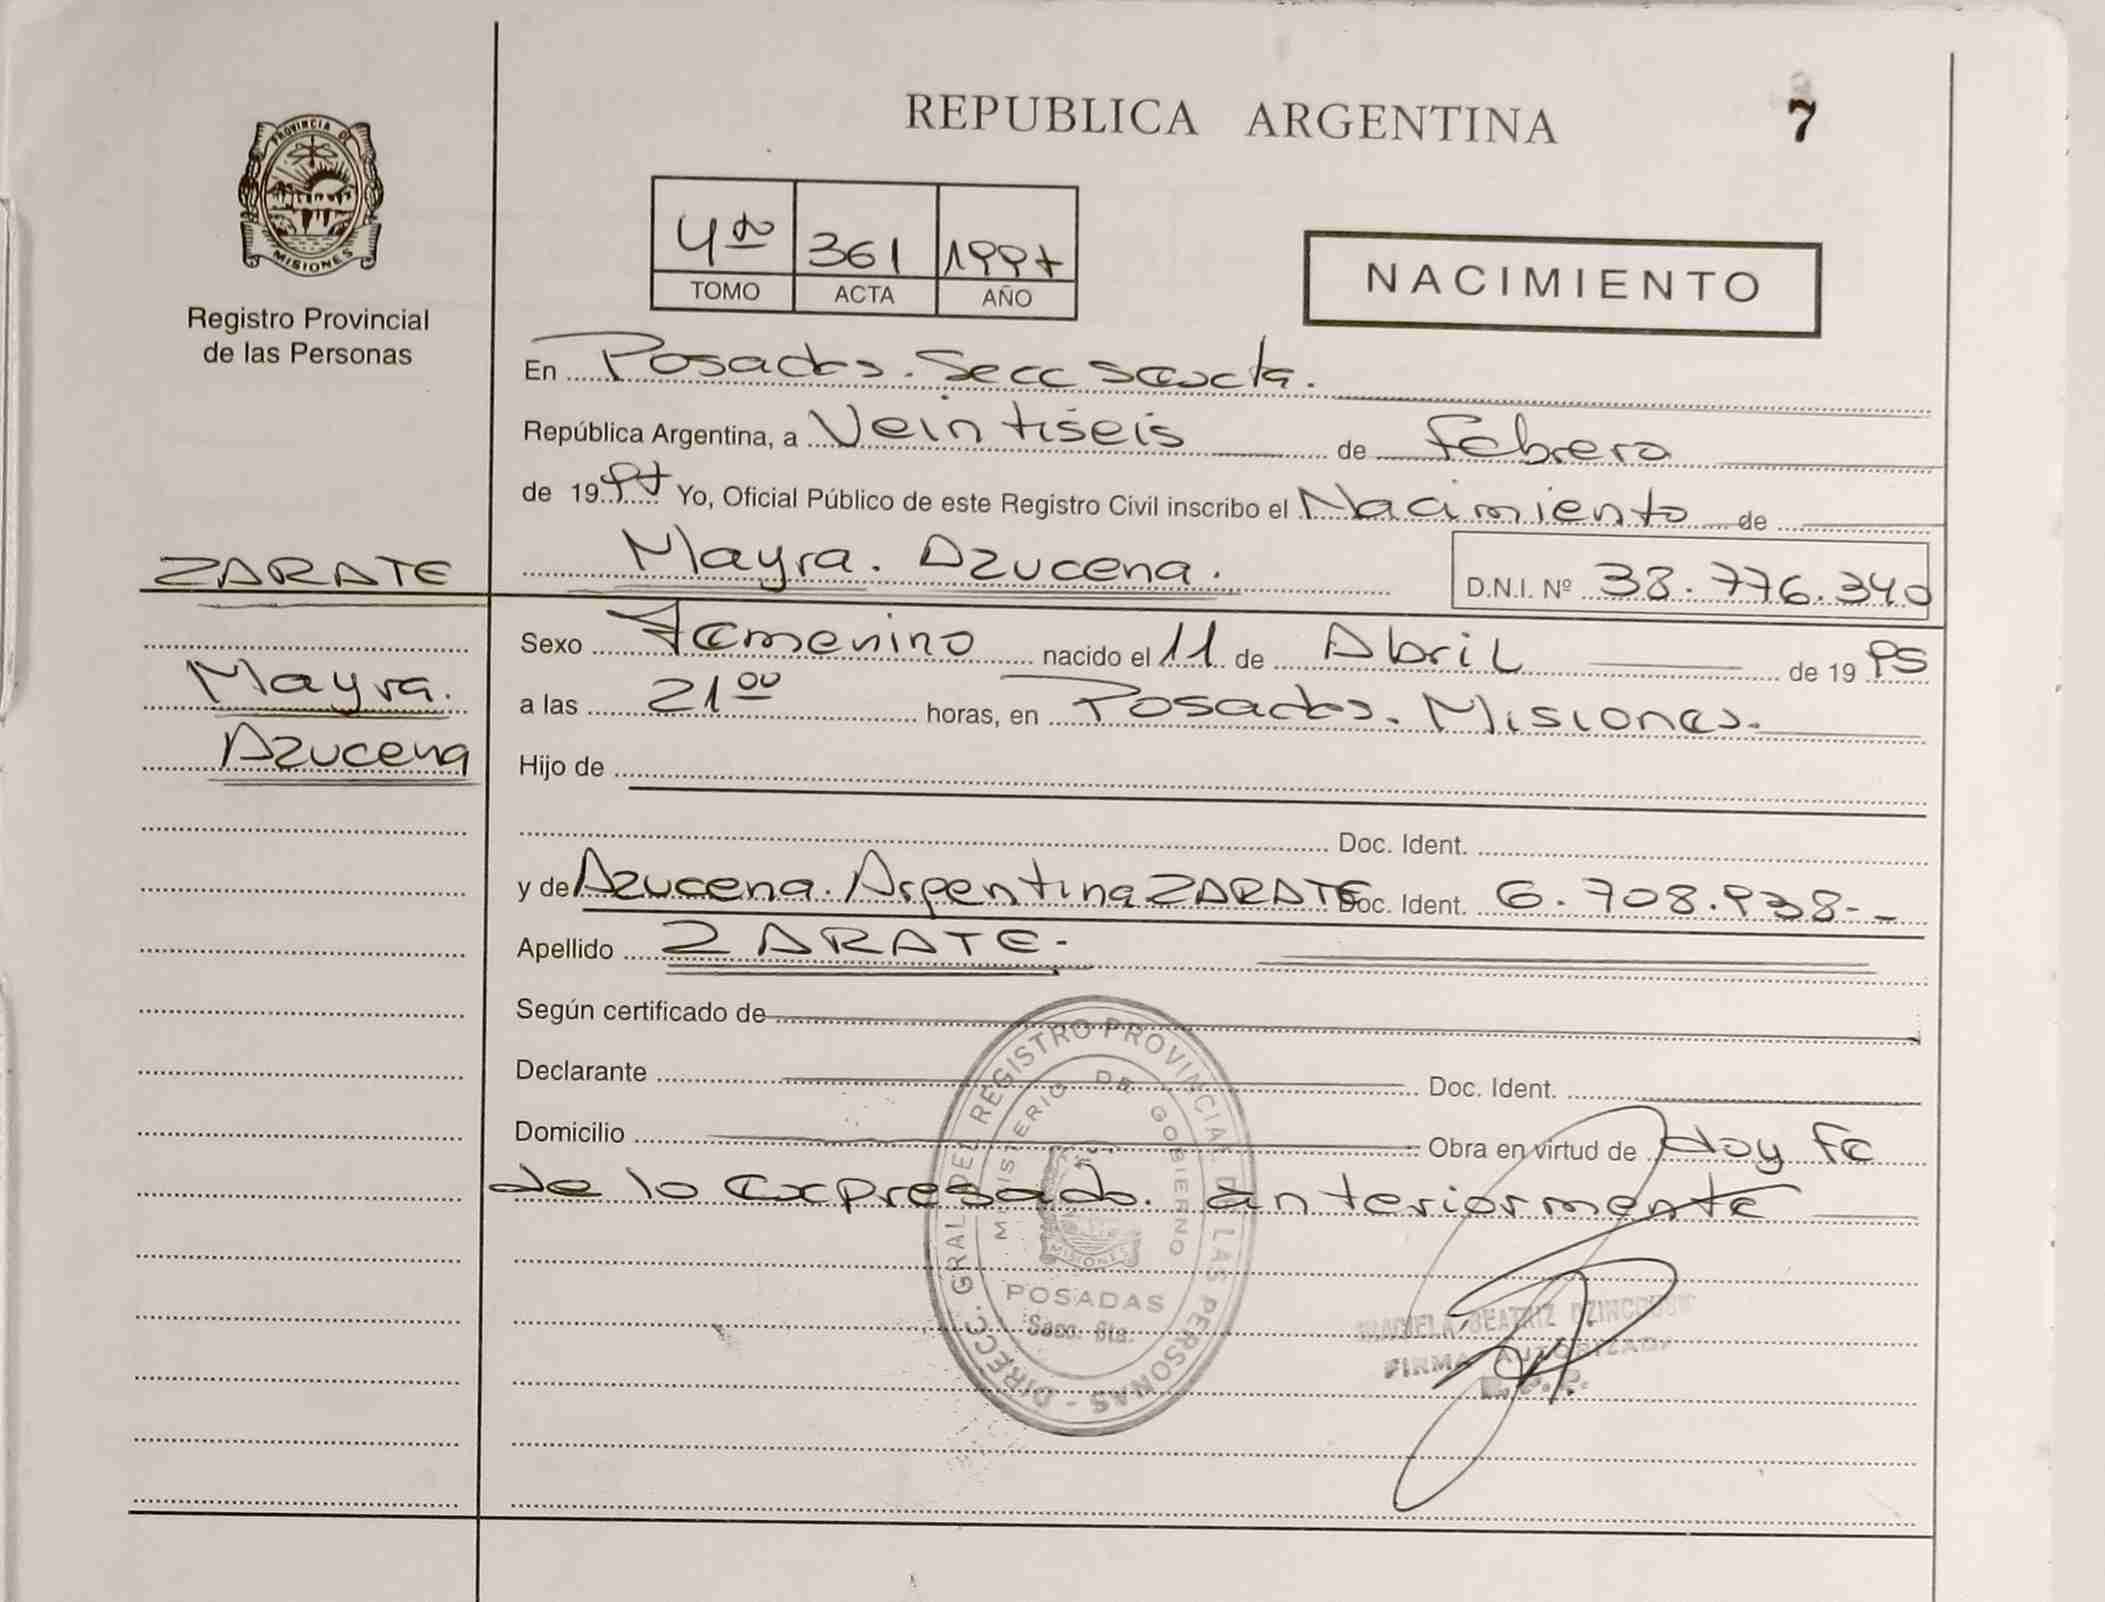 REPUBLICA ARGENTINA
7
PROVINCIA DE
MISIONES
Registro Provincial
de las Personas
4to 361 1997
TOMO ACTA AÑO
NACIMIENTO
En Posadas. Secc Sexta.
República Argentina, a Veintiseis de Febrero
de 1997 Yo, Oficial Público de este Registro Civil inscribo el Nacimiento de
Mayra. Azucena. D.N.I. Nº 38.776.340
ZARATE
Mayra.
Azucena
Sexo Femenino nacido el 11 de Abril de 1995
a las 21 00 horas, en Posadas. Misiones.
Hijo de
Doc. Ident.
y de Azucena. Argentina ZARATE Doc. Ident. 6.708.938-
Apellido ZARATE-
Según certificado de
Declarante Doc. Ident.
Domicilio Obra en virtud de doy fe
de lo expresado. anteriormente
DIRECC. GRAL. DEL REGISTRO PROVINCIAL DE LAS PERSONAS -
MINISTERIO DE GOBIERNO
MISIONES
POSADAS
Secc. 6ta.
BEATRIZ
FIRMA AUTORIZADA